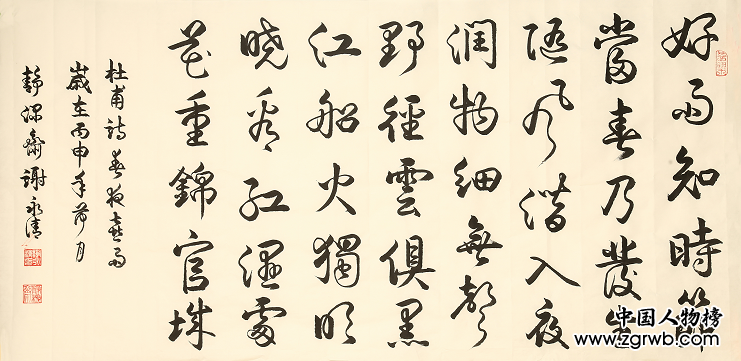 好雨知時節
當春乃發生
隨風潛入夜
潤物細無聲
野徑雲俱黑
江船火獨明
曉看紅濕處
花重錦官城
杜甫詩春夜喜雨
歲在丙申年荷月
靜 齋謝永清
中国人物榜
www.zgrwb.com